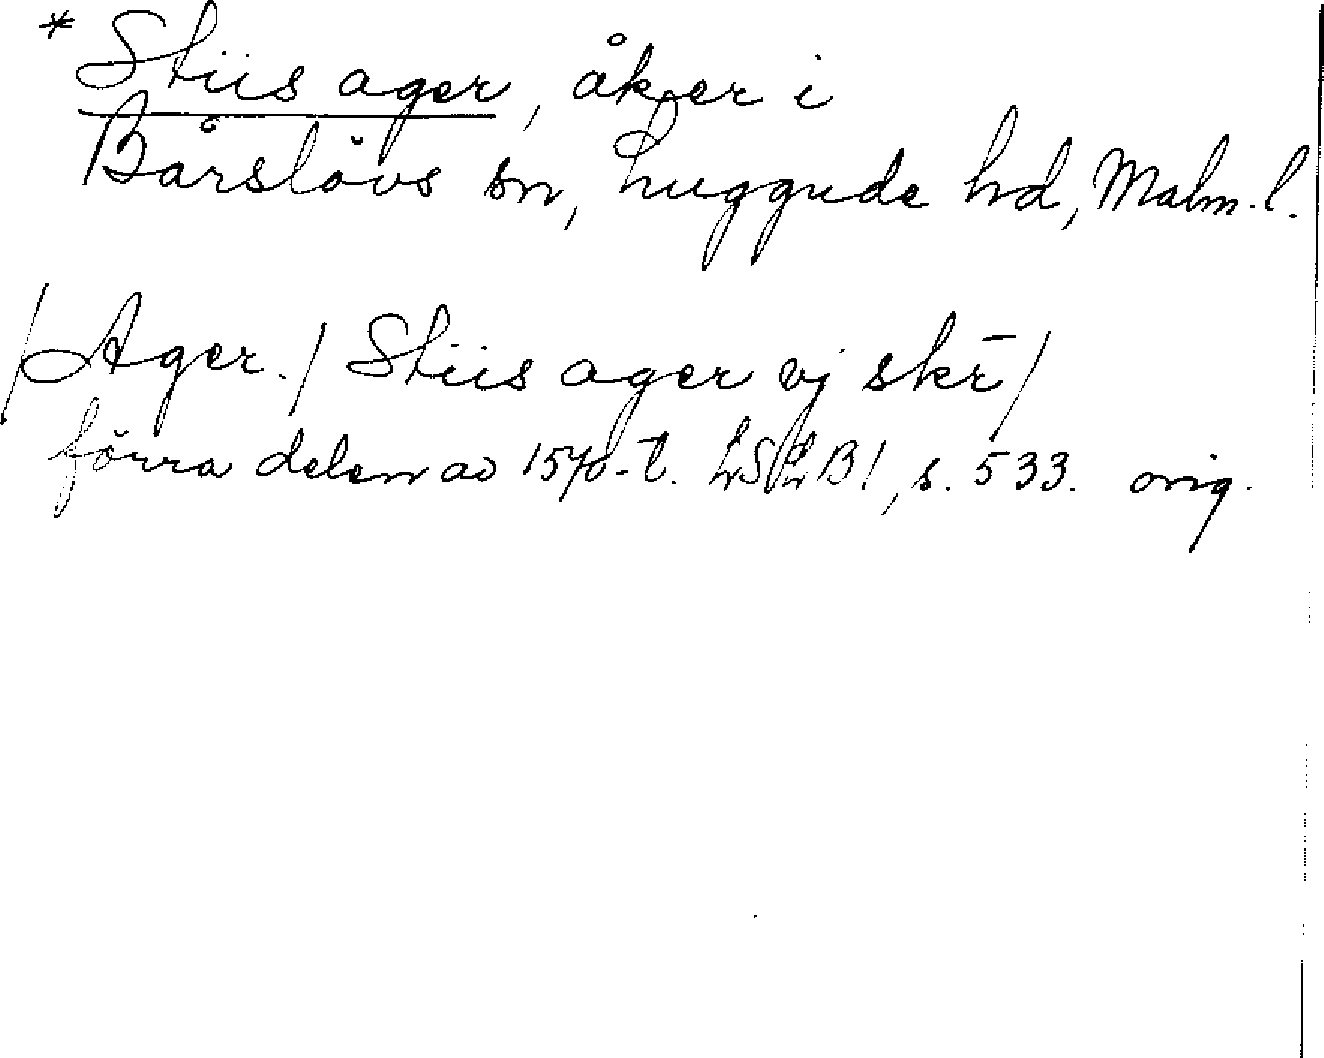 * Stiis ager, åker i
Bårslövs sn, Luggude hd, Malm. l.
/Ager./ Stiis ager vj skr̄/
förra delen av 1570-t. LSLB1, s. 533. orig.